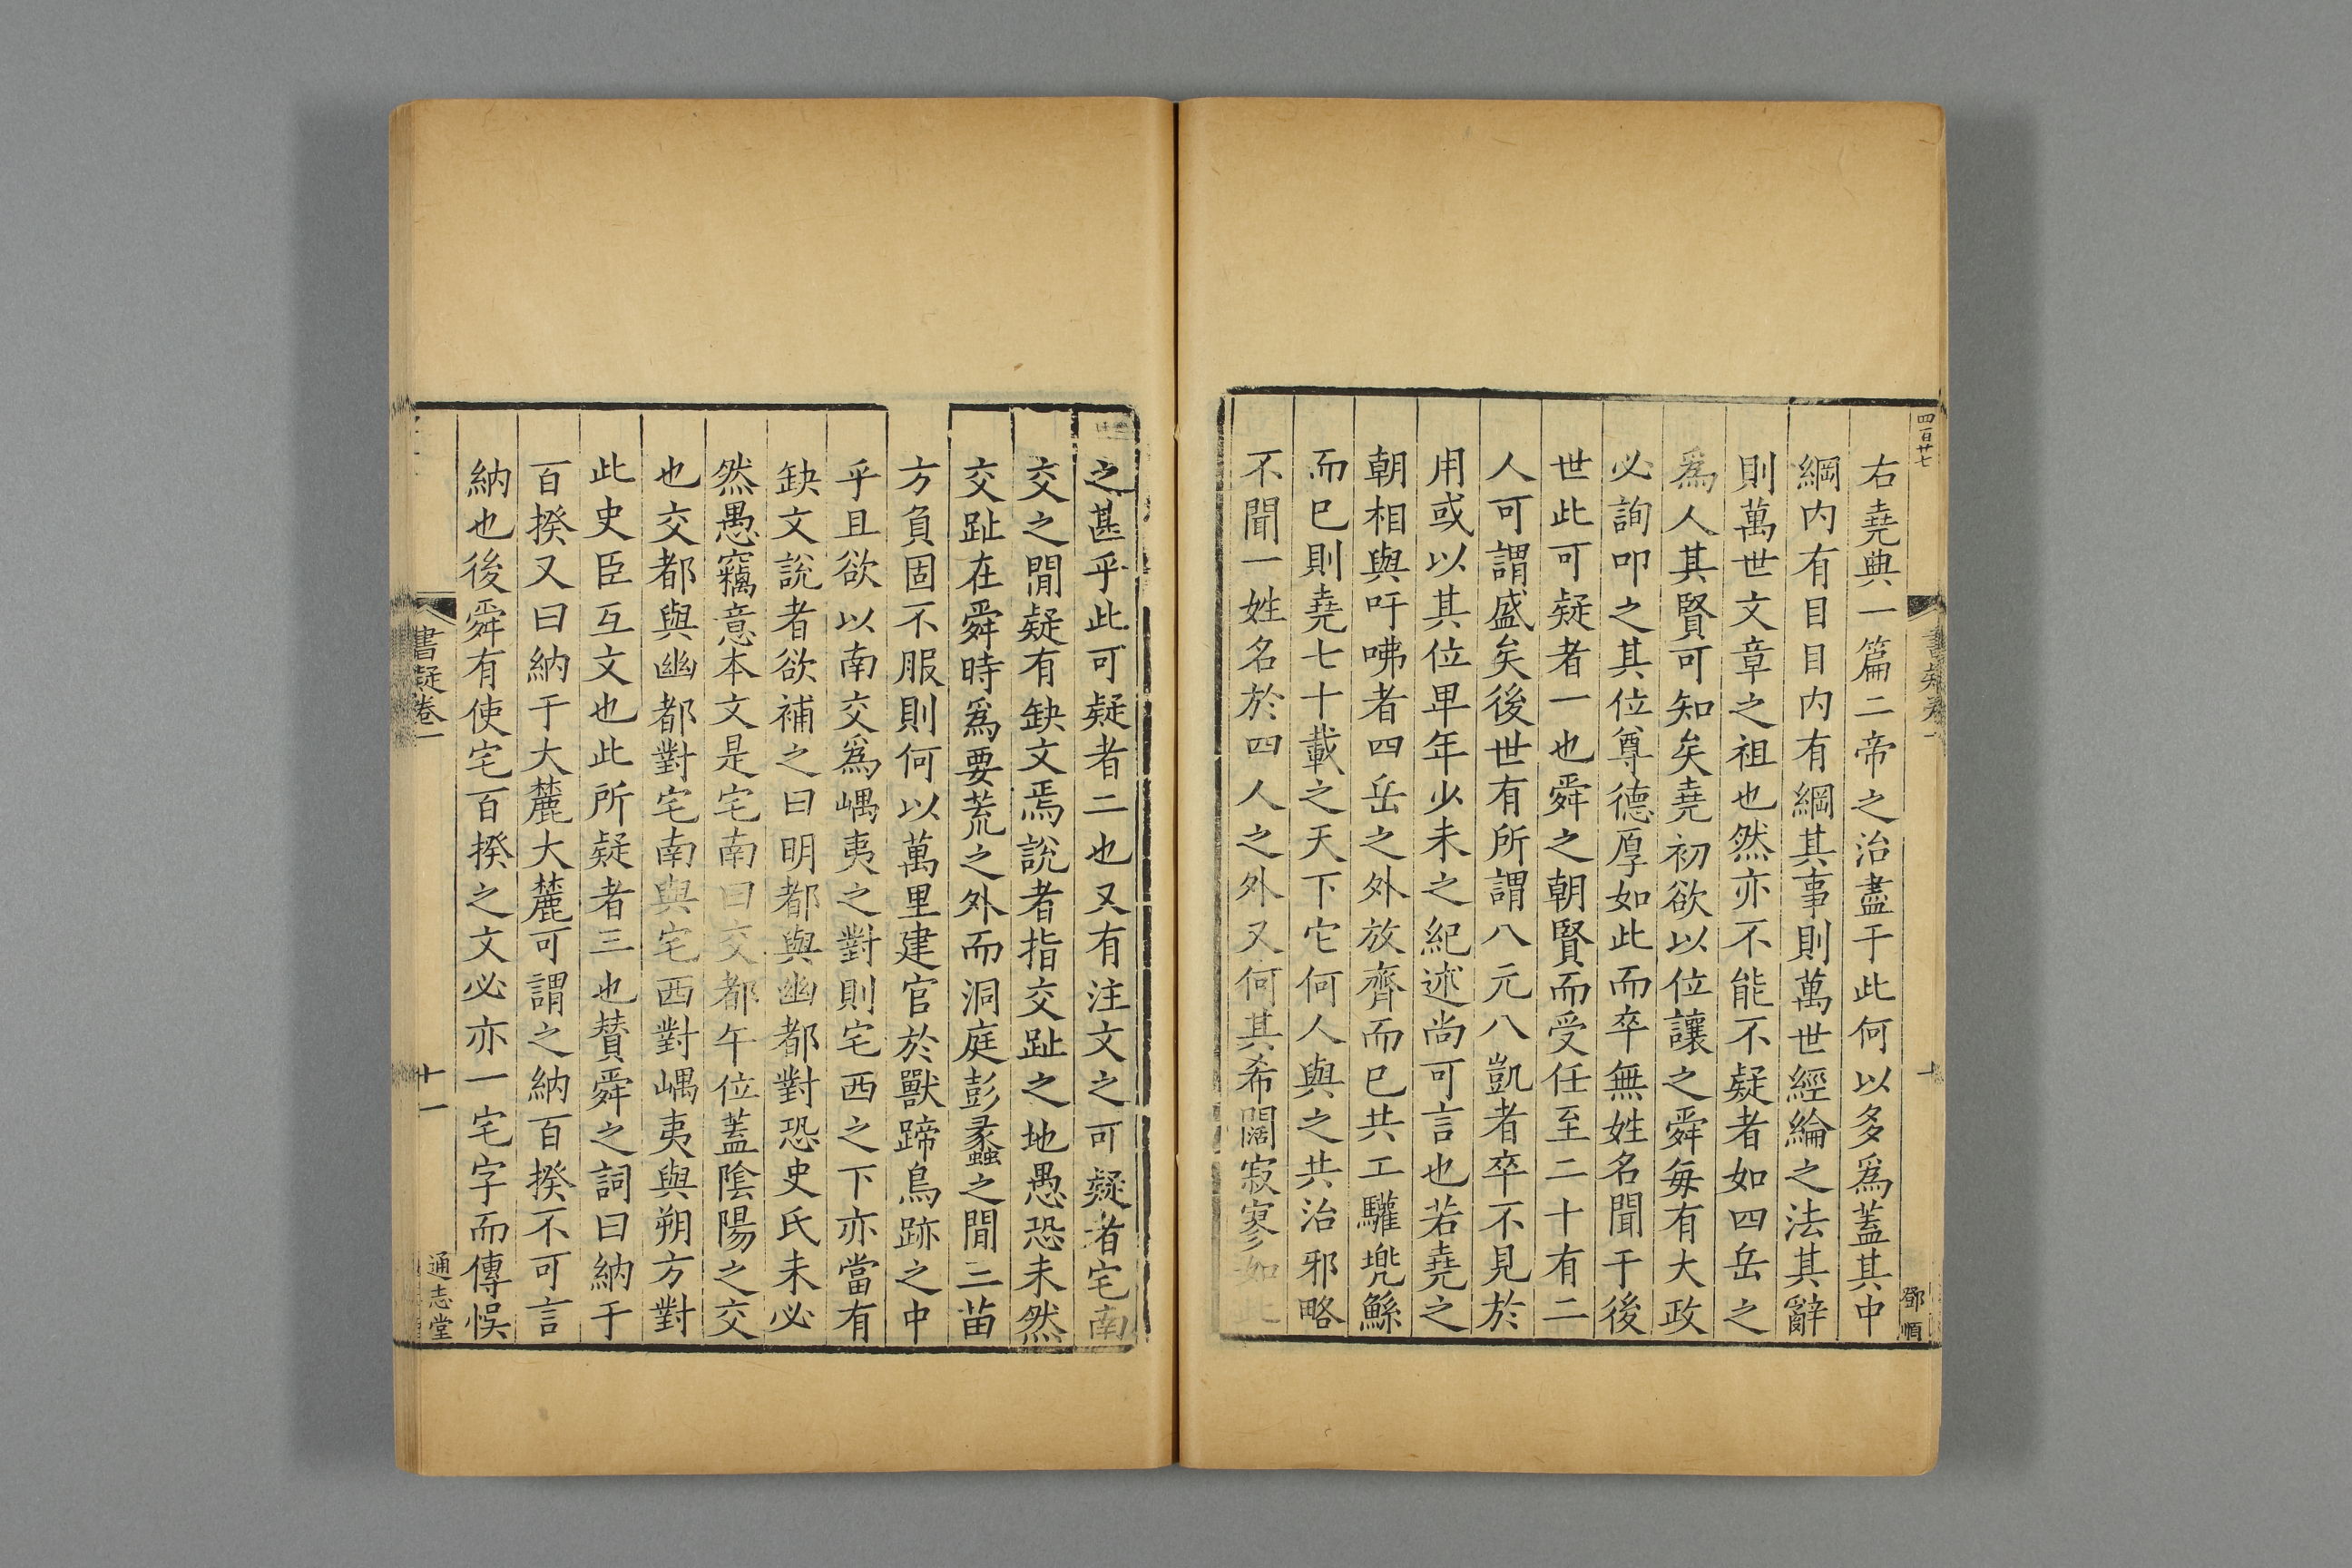 四百廿七
書疑卷一
十
鄧順
右堯典一篇二帝之治盡于此何以多爲蓋其中
綱内有目目内有綱其事則萬世經綸之法其辭
則萬世文章之祖也然亦不能不疑者如四岳之
爲人其賢可知矣堯初欲以位讓之舜每有大政
必詢叩之其位尊德厚如此而卒無姓名聞于後
世此可疑者一也舜之朝賢而受任至二十有二
人可謂盛矣後世有所謂八元八凱者卒不見於
用或以其位卑年少未之紀述尚可言也若堯之
朝相與吁咈者四岳之外放齊而已共工驩兠鯀
而已則堯七十載之天下它何人與之共治邪略
不聞一姓名於四人之外又何其希闊寂寥如此
之甚乎此可疑者二也又有注文之可疑者宅南
交之閒疑有缺文焉說者指交趾之地愚恐未然
交趾在舜時爲要荒之外而洞庭彭蠡之閒三苗
方負固不服則何以萬里建官於獸蹄鳥跡之中
乎且欲以南交爲嵎夷之對則宅西之下亦當有
缺文說者欲補之曰明都與幽都對恐史氏未必
然愚竊意本文是宅南曰交都午位蓋陰陽之交
也交都與幽都對宅南與宅西對嵎夷與朔方對
此史臣互文也此所疑者三也賛舜之詞曰納于
百揆又曰納于大麓大麓可謂之納百揆不可言
納也後舜有使宅百揆之文必亦一宅字而傳悞
書疑卷一
十一
通志堂